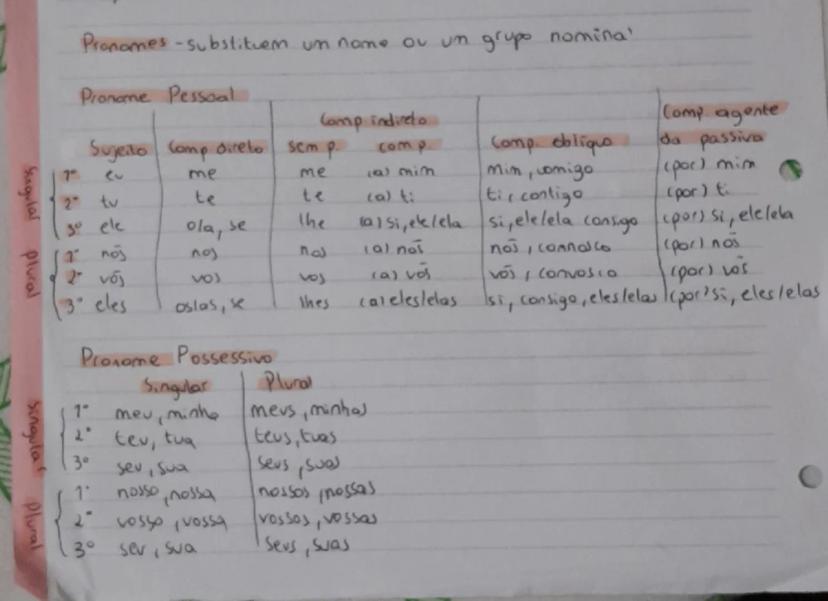 Pronomes - substituem um nome ou um grupo nominal
Pronome Pessoal
Comp indireto Comp. agente
Sujeito Comp direto sem p. com p. Comp. oblíquo da passiva
singular
1º eu me me (a) mim mim, comigo (por) mim
2º tu te te (a) ti ti, contigo (por) ti
3º ele o|a, se lhe (a) si, ele/ela si, ele/ela consigo (por) si, ele/ela
plural
1º nós nos nos (a) nós nós, connosco (por) nós
2º vós vos vos (a) vós vós, convosco (por) vós
3º eles os|as, se lhes (a) eles/elas si, consigo, eles/elas (por) si, eles/elas
Pronome Possessivo
Singular Plural
singular
1º meu, minha meus, minhas
2º teu, tua teus, tuas
3º seu, sua seus, suas
plural
1º nosso, nossa nossos, nossas
2º vosso, vossa vossos, vossas
3º seu, sua seus, suas